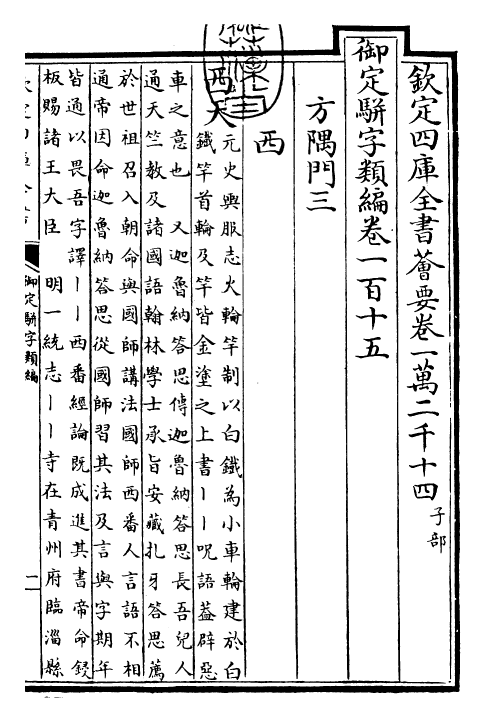 欽定四庫全書薈要卷一萬二千十四 子部
御定駢字類編卷一百十五
方隅門三
西
西天
元史輿服志火輪竿制以白鐵為小車輪建於白
鐵竿首輪及竿皆金塗之上書丨丨呪語葢辟惡
車之意也 又迦魯納答思傳迦魯納答思長吾兒人
通天竺教及諸國語翰林學士承旨安藏扎牙答思薦
於世祖召入朝命與國師講法國師西番人言語不相
通帝因命迦魯納答思從國師習其法及言與字期年
皆通以畏吾字譯丨丨西番經論既成進其書帝命鋟
板賜諸王大臣 明一統志丨丨寺在青州府臨淄縣
御定駢字類編
一